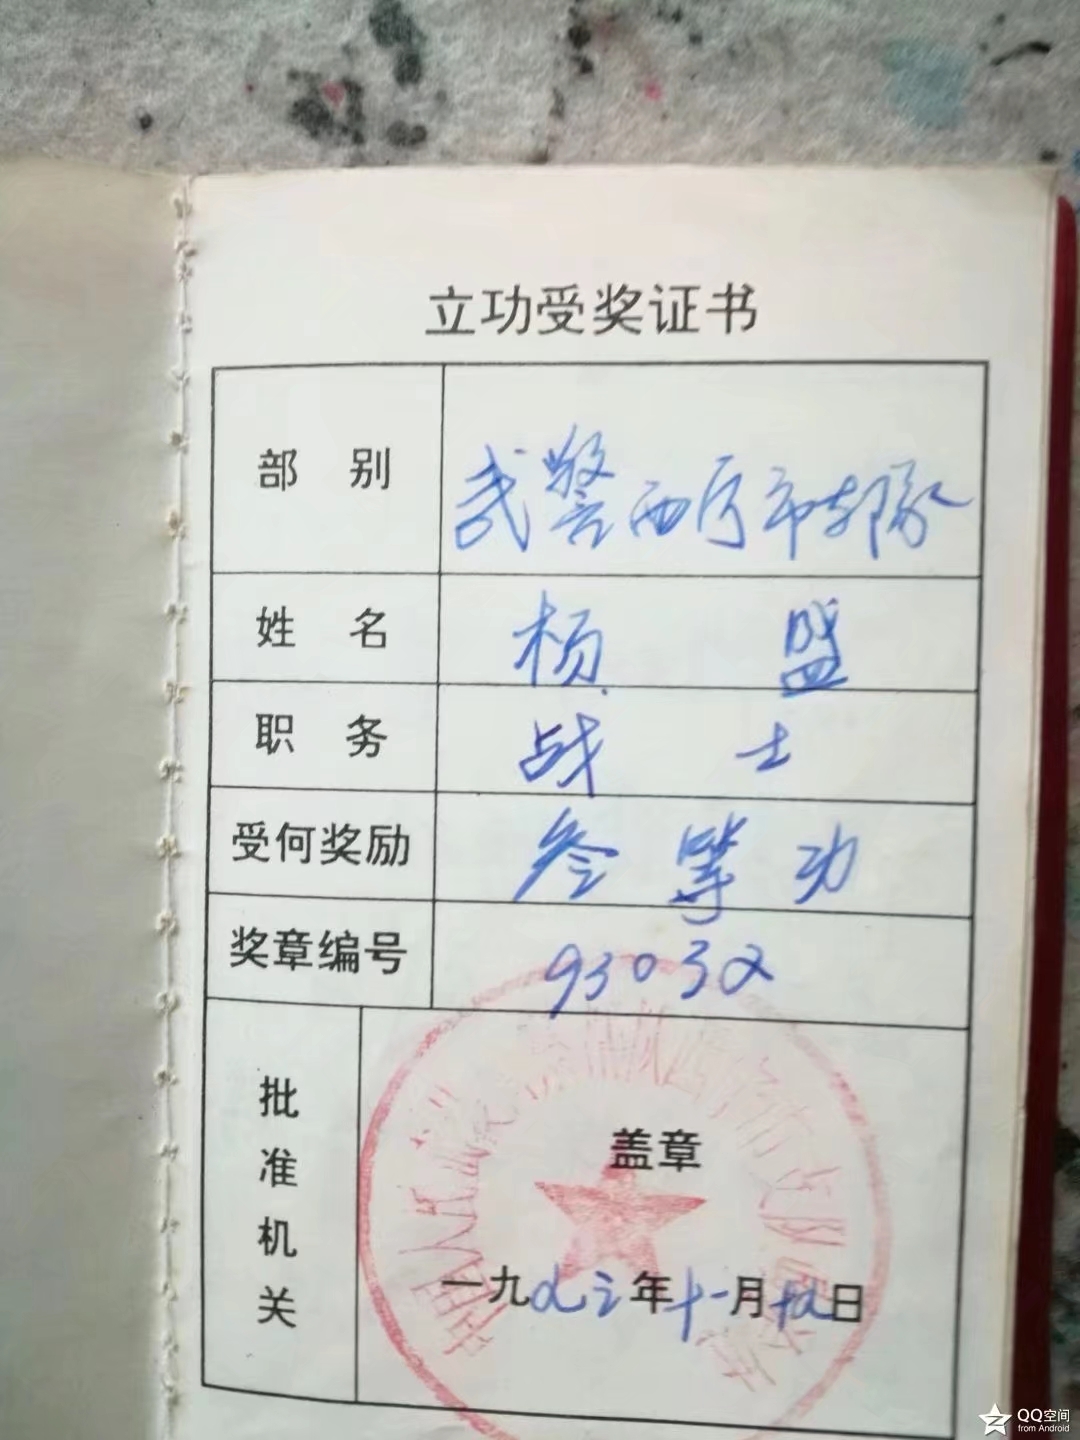 立功受奖证书
部 别 武警西宁市支队
姓 名 杨 盛
职 务 战 士
受何奖励 叁等功
奖章编号 93032
批准机关
盖章
一九九三年十一月十九日
QQ空间
from Android